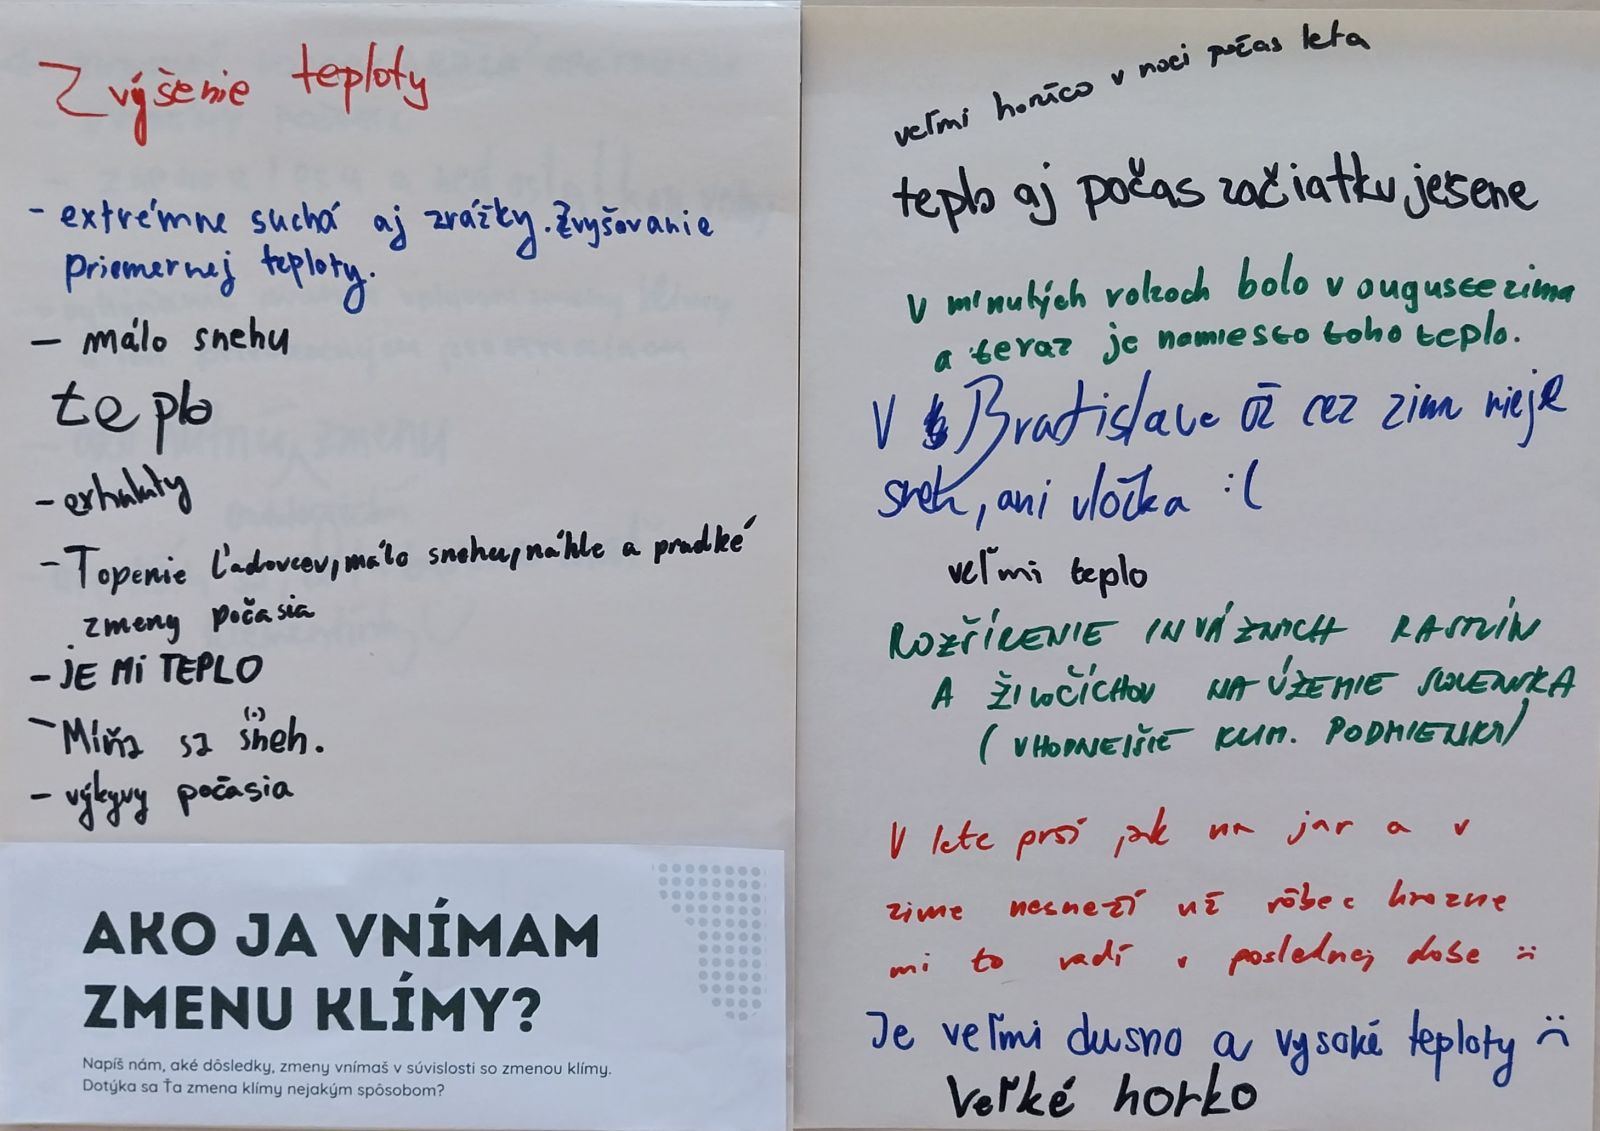 Zvýšenie teploty
- extrémne suchá aj zrážky. Zvyšovanie
priemernej teploty.
- málo snehu
teplo
- Topenie ľadovcov, málo snehu, náhle a prudké
zmeny počasia
- JE Mi TEPLO
- Míňa sa sneh.
- výkyvy počasia
AKO JA VNÍMAM
ZMENU KLÍMY?
Napíš nám, aké dôsledky, zmeny vnímaš v súvislosti so zmenou klímy.
Dotýka sa Ťa zmena klímy nejakým spôsobom?
veľmi horúco v noci počas leta
teplo aj počas začiatku jesene
V minulých rokoch bolo v auguste zima
a teraz je namiesto toho teplo.
V Bratislave už cez zimu nieje
sneh, ani vločka :(
veľmi teplo
ROZŠÍRENIE INVÁZNYCH RASTLÍN
A ŽIVOČÍCHOV NA ÚZEMIE SLOVENSKA
(VHODNEJŠIE KLIM. PODMIENKY)
V lete prší jak na jar a v
zime nesneží už vôbec hrozne
mi to vadí v poslednej dobe :(
Je veľmi dusno a vysoké teploty :(
Veľké horko